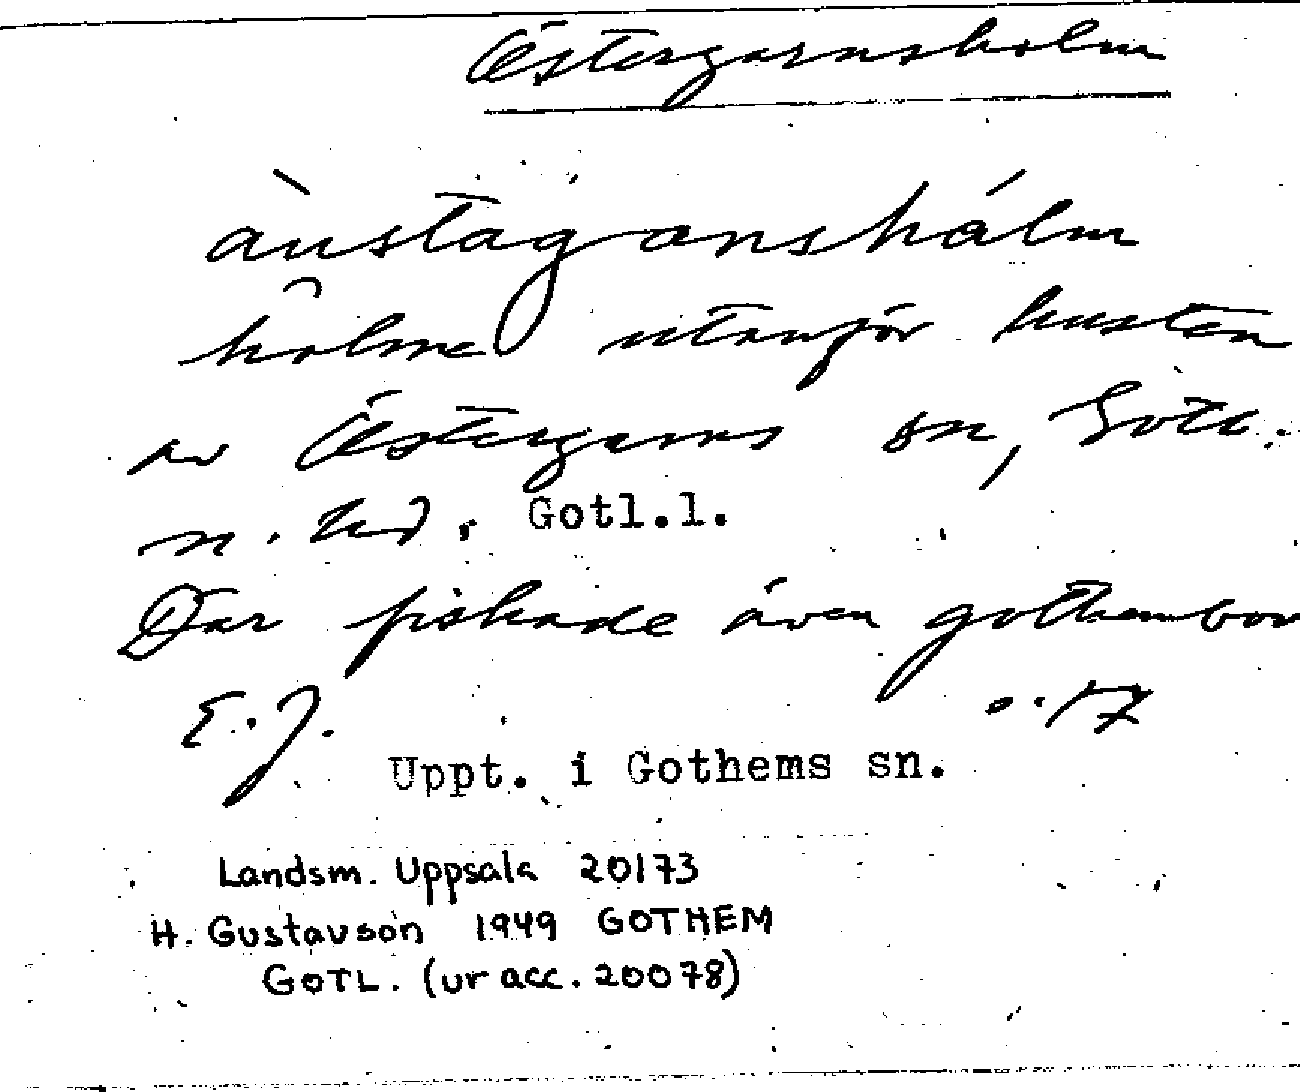 Östergarnsholm
àustáganshálm
holme utanför kusten
av Östergarns sn, Gotl.
n. hd, Gotl.l.
Där fiskade även gothembor
E.J. s. 17
Uppt. i Gothems sn.
Landsm. Uppsala 20173
H. Gustavson 1949 GOTHEM
GOTL. (ur acc. 20078)